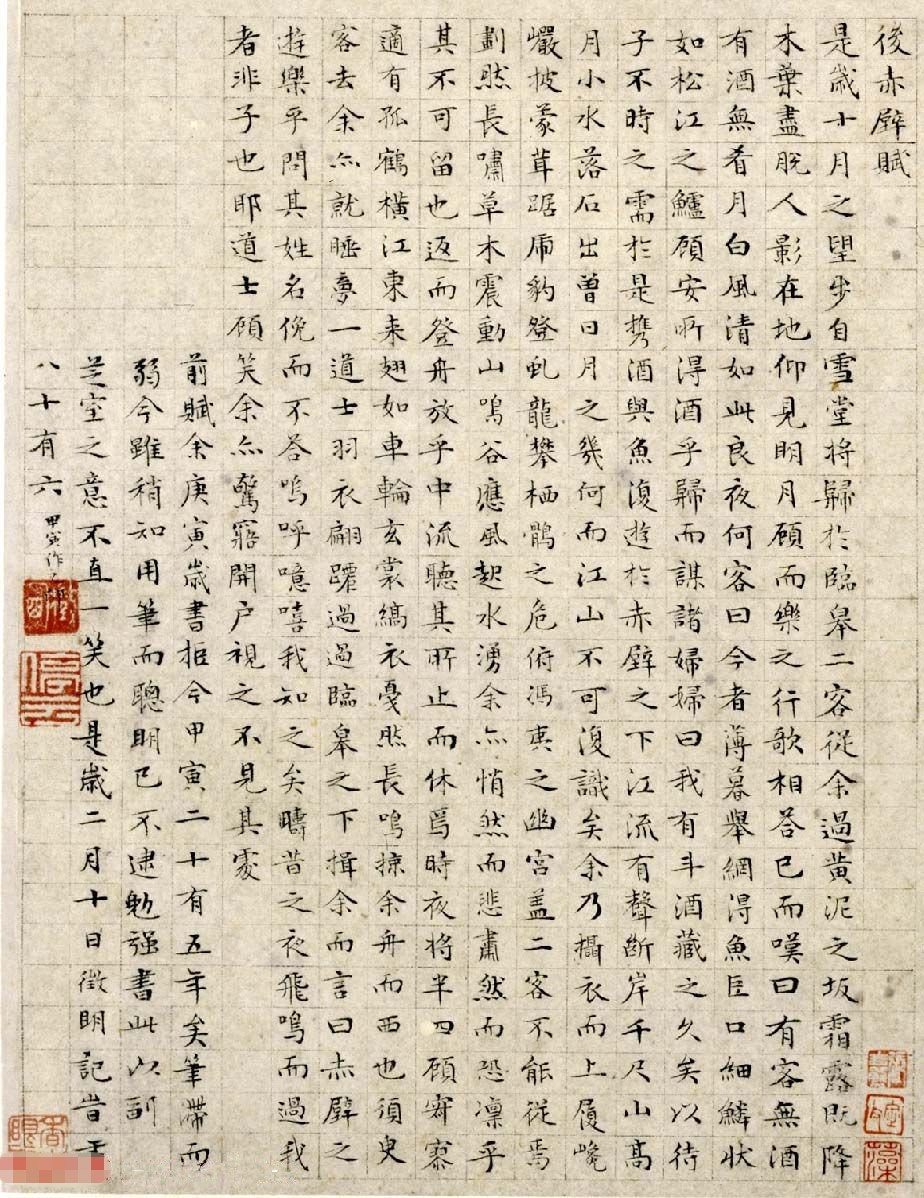 後赤壁賦
是歲十月之望步自雪堂將歸於臨皋二客從余過黃泥之坂霜露既降
木葉盡脫人影在地仰見明月顧而樂之行歌相答已而嘆曰有客無酒
有酒無肴月白風清如此良夜何客曰今者薄暮舉網得魚巨口細鱗狀
如松江之鱸顧安所得酒乎歸而謀諸婦婦曰我有斗酒藏之久矣以待
子不時之需於是攜酒與魚復遊於赤壁之下江流有聲斷岸千尺山高
月小水落石出曾日月之幾何而江山不可復識矣余乃攝衣而上履巉
巖披蒙茸踞虎豹登虬龍攀栖鶻之危俯馮夷之幽宮蓋二客不能從焉
劃然長嘯草木震動山鳴谷應風起水湧余亦悄然而悲肅然而恐凜乎
其不可留也返而登舟放乎中流聽其所止而休焉時夜將半四顧寂寥
適有孤鶴橫江東來翅如車輪玄裳縞衣戛然長鳴掠余舟而西也須臾
客去余亦就睡夢一道士羽衣翩躚過過臨皋之下揖余而言曰赤壁之
遊樂乎問其姓名俛而不答嗚呼噫嘻我知之矣疇昔之夜飛鳴而過我
者非子也耶道士顧笑余亦驚寤開戶視之不見其處
前賦余庚寅歲書拒今甲寅二十有五年矣筆滯而
弱今雖稍知用筆而聰明已不逮勉強書此以副
芝室之意不直一笑也是歲二月十日徵明記昔年
八十有六甲寅作